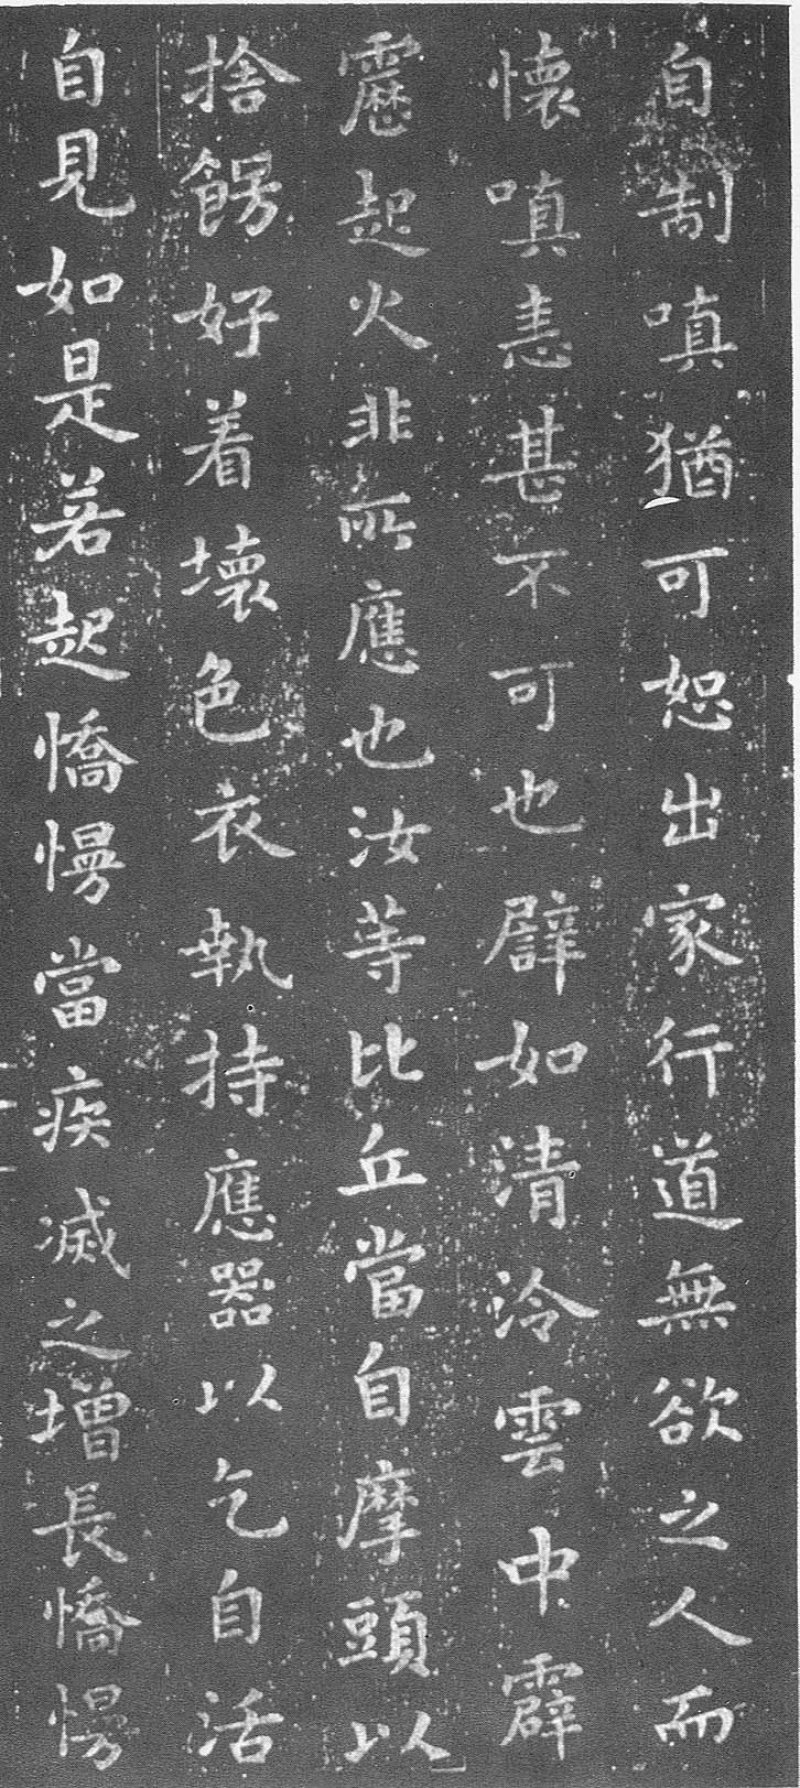 自制嗔猶可恕出家行道無欲之人而
懷嗔恚甚不可也譬如清泠雲中霹
靂起火非所應也汝等比丘當自摩頭以
捨飾好着壞色衣執持應器以乞自活
自見如是若起憍慢當疾滅之增長憍慢